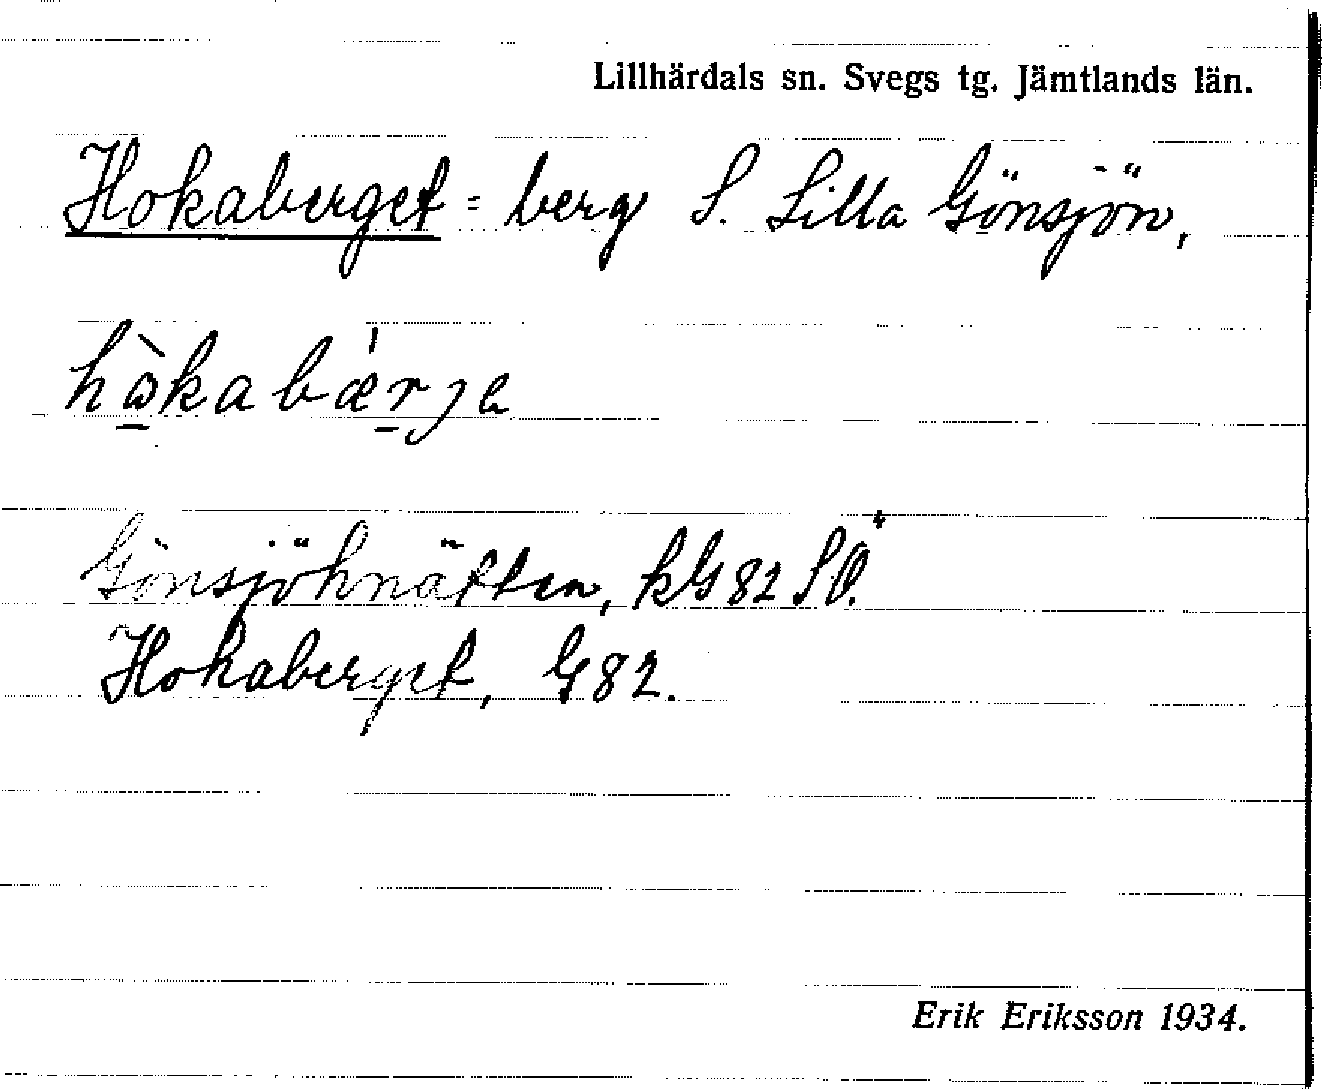 Lillhärdals sn. Svegs tg. Jämtlands län.
Hokaberget = berg S. Lilla Gönsjön,
hɷ̀kabǽrɟe
Gönsjöhnätten, kG82 SÖ.
Hokaberget, G82.
Erik Eriksson 1934.